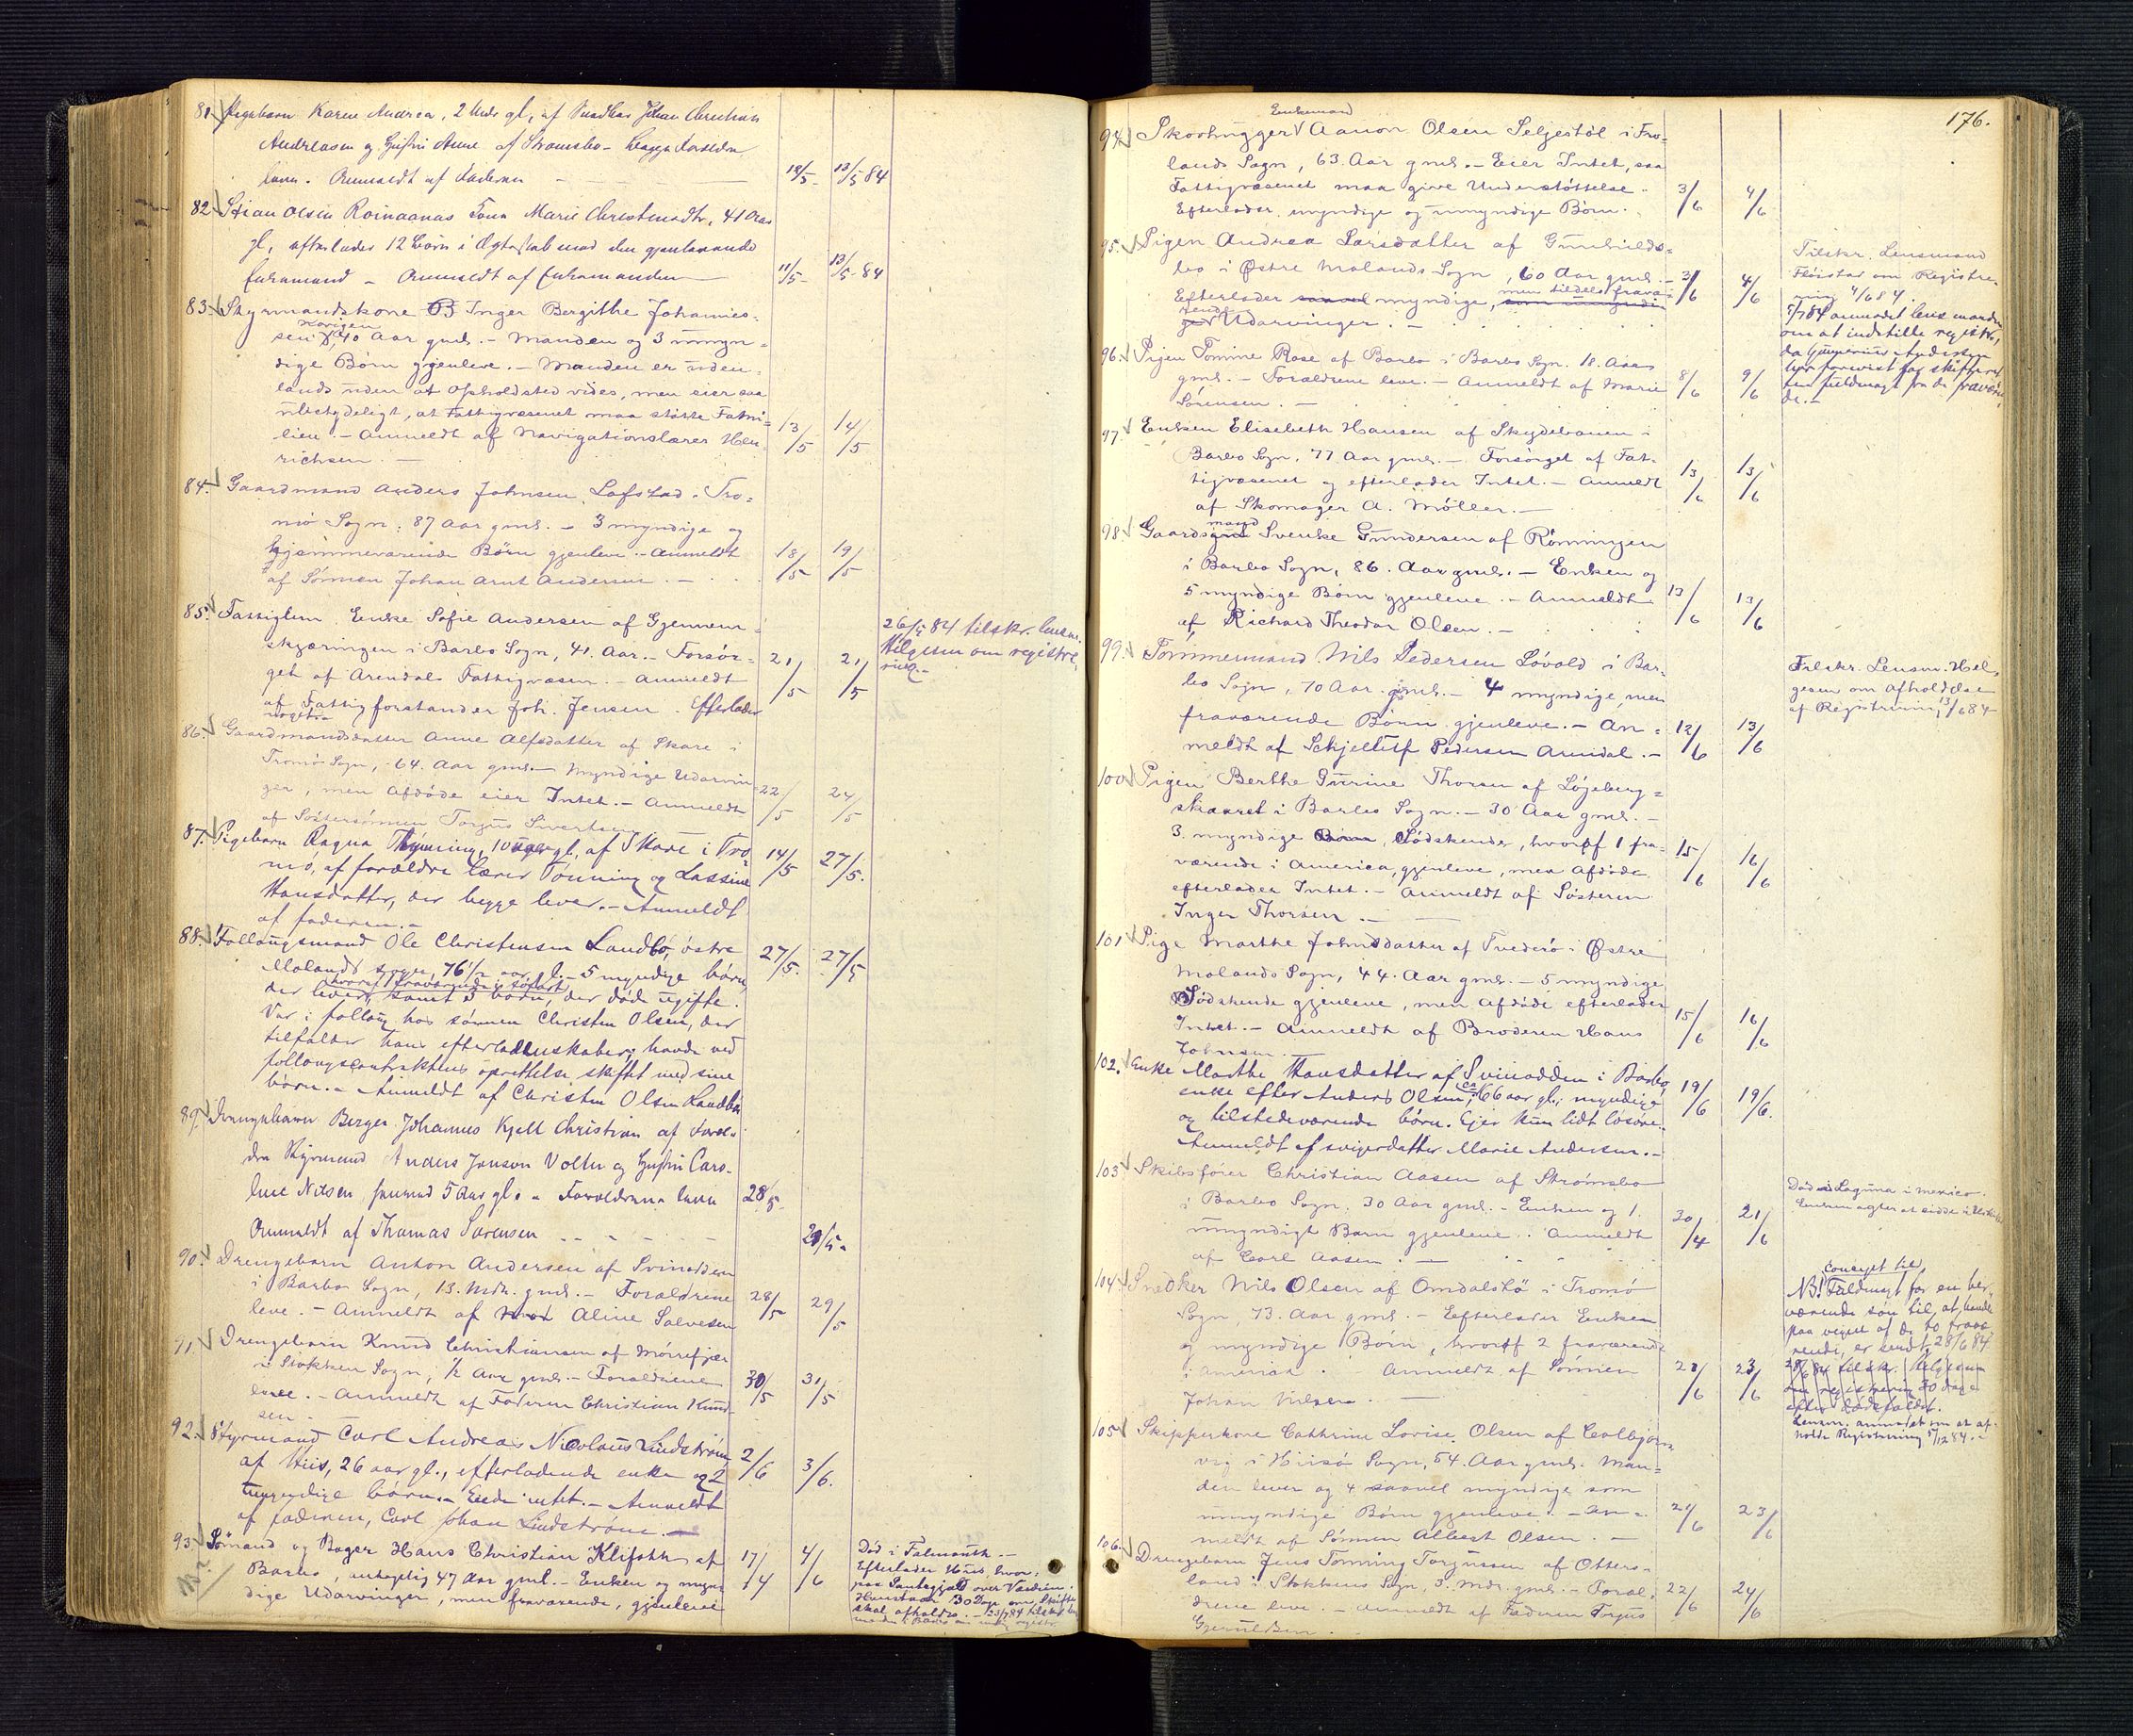 81. Pigebarn Karen Andrea, 2 Mdr gl, af Johan Christian
Andreasen og Hustru Anne af Strømsbo - begge Forældre
lever. Anmeldt af Faderen 12/5 - 13/5 84
82. Olsen Roinaanas Kone Marie Christensdtr, 41 Aar
gl, efterlader 12 Børn i Ægteskab med den gjenlevende
Enkemand - Anmeldt af Enkemanden 11/5 - 13/5 84
83. Styrmandskone Inger Bergithe Johannes-
sen Kovigen, 40 Aar gml. - Manden og 3 umyn-
dige Børn gjenleve. - Manden er uden-
lands uden at Opholdsted vides, men eier saa
ubetydeligt, at Fattigvæsenet maa støtte Fami-
lien - Anmeldt af Navigationslærer Hen- 13/5 14/5
richsen. -
84. Gaardmand Anders Johnsen Lofstad i Tro-
mø Sogn: 87 Aar gml. - 3 myndige og
hjemmeværende Børn gjenleve. - Anmeldt 18/5 19/5
af Sønnen Johan Arnt Andersen. -
85. Fattiglem Enke Sofie Andersen af Gjennem-
skjæringen i Barbo Sogn, 41. Aar. - Forsør-
get af Arendals Fattigvæsen. - Anmeldt 21/5 21/5
af Fattigforstander Joh. Jensen. Efterlader
noget
26/5 84 tilskr. lensm.
Helgesen om registre-
ring. -
86. Gaardmandsdatter Anne Alfsdatter af Skare i
Tromø Sogn, 64. Aar gml. - Myndige Udarvin-
ger, men Afdøde eier Intet. - Anmeldt 22/5 24/5
af Søstersønnen Torgus Sivertsen
87. Pigebarn Ragna Tønning, 10 uger gl, af Skare i Tro-
mø, af forældre Lærer Tønning og Lassine 14/5 27/5.
Hansdatter, der begge lever. - Anmeldt
af faderen. -
88. Follaugsmand Ole Christensen Landbø, østre
Molands sogn, 76 1/2 aar gl. - 5 myndige børn, 27/5. 27/5
hvoraf 1 fraværende i søfart
der lever, samt 3 børn, der døde ugifte.
Var i follaug hos sønnen Christen Olsen, der
tilfalder hans efterladenskaber; havde ved
follaugscontraktens oprettelse skiftet med sine
børn. - Anmeldt af Christen Olsen Landbø
89. Drengebarn Berger Johannes Kjell Christian af Foræl-
dre Styrmand Anders Jonson Volter og Hustru Caro-
line Nilsen, 5 Aar gl. - Forældrene lever 28/5
Anmeldt af Thomas Sørensen 29/5 -
90. Drengebarn Anton Andersen af Svinodden
i Barbo Sogn, 13. Mdr. gml. - Forældrene 28/5 29/5
leve. - Anmeldt af Aline Salvesen
91. Drengebarn Knud Christiansen af Mørefjær
i Stokken Sogn, 1/2 Aar gml. - Forældrene 30/5 31/5
leve. - Anmeldt af Faderen Christian Knud-
sen -
92. Styrmand Carl Andreas Nicolaus Lindstrøm
af Hiis, 26 aar gl., efterladende enke og 2 2/6 3/6.
umyndige børn. - Eiede intet. - Anmeldt
af faderen, Carl Johan Lindstrøm. -
93. Sømand og Bager Hans Christian Klifoth af
Barbo, antagelig 47 Aar gml. - Enken og myn- 17/4 4/6
dige Udarvinger, men fraværende, gjenleve
Død i Falmouth. -
Efterlader Huus, hvor-
paa Pantegjæld over Værdien.
30 Dage om Skifte
skal afholdes. -
176.
Enkemand
94. Skovhugger Aanon Olsen Seljestøl i Fro-
lands Sogn, 63. Aar gml. - Eier Intet, saa
Fattigvæsenet maa give Understøttelse. - 3/6 4/6
Efterlader myndige og umyndige Børn. -
95. Pigen Andrea Larsdatter af Gunhilds-
bo i Østre Molands Sogn, 60 Aar gml. - 3/6 4/6
Efterlader saavel myndige, men tildels fravæ-
rende Udarvinger. -
Tilskr. Lensmand
Fløistad om Registre-
ring 4/6 84.
anmodet lensmanden
om at indstille registr.,
96. Pigen Tomine Rose af Barbo i Barbo Sogn. 18. Aar
gml. - Forældrene leve. - Anmeldt af Marie 8/6 9/6
Sørensen. -
97. Enken Elisebeth Hansen af Skydebanen i
Barbo Sogn, 77 Aar gml. - Forsørget af Fat-
tigvæsenet og efterlader Intet. - Anmeldt 13/6 13/6
af Skomager A. Møller. -
98. Gaardmand Svenke Gundersen af Rønningen
i Barbo Sogn, 86. Aar gml. - Enken og
5 myndige Børn gjenleve. - Anmeldt 13/6 13/6
af Richard Theodor Olsen. -
99. Tømmermand Nils Pedersen Løvold i Bar-
bo Sogn, 70 Aar. gml. - 4 myndige, men
fraværende Børn gjenleve. - An- 12/6 13/6
meldt af Schjeltulf Pedersen Arendal. -
Tilskr. Lensm. Hel-
gesen om Afholdelse
af Registrering 13/6 84 -
100. Pigen Berthe Gurine Thorsen af Løgeberg-
skaaret i Barbo Sogn. - 30 Aar gml. -
3. myndige Børn Sødskende, hvoraf 1 fra- 15/6 16/6
værende i America, gjenleve, men Afdøde
efterlader Intet. - Anmeldt af Søsteren
Inger Thorsen. -
101. Pige Marthe Johnsdatter af Tvederø i Østre
Molands Sogn, 44. Aar gml. - 5 myndige
Sødskende gjenleve, men Afdøde efterlader 15/6 16/6
Intet. - Anmeldt af Broderen Hans
Johnsen. -
102. Enke Marthe Hansdatter af Svinodden i Barbo,
enke efter Anders Olsen, ca 66 aar gl.; myndige 19/6 19/6.
og tilstedeværende børn. Ejer kun lidt løsøre.
Anmeldt af svigerdatter Marie Andersen. -
103. Skibsfører Christian Aasen af Strømsbo
i Barbo Sogn, 30 Aar gml. - Enken og 1.
umyndigt Barn gjenleve. Anmeldt 20/4 21/6
af Carl Aasen. -
Død i Laguna i Mexico.
Enken agter at sidde i Uskifte
104. Snedker Nils Olsen af Omdalstø i Tromø
Sogn, 73. Aar gml. - Efterlader Enken
og myndige Børn, hvoraf 2 fraværende
i America. Anmeldt af Sønnen 21/6 23/6
Johan Nilsen. -
Concept til,
NB! Fuldmagt for en her-
værende søn til, at handle
paa vegne af de to fravæ-
rende, er sendt 28/6 84.
28/6 84 tilskr. Helgesen
om registrering 30 dage
efter dødsfaldet.
Lensm. anmodet om at af-
holde Registrering 5/12 84. -
105. Skipperkone Cathrine Lovise Olsen af Colbjørns-
vig i Hisø Sogn, 54. Aar gml. Man-
den lever og 4 saavel myndige som
umyndige Børn gjenleve. - An- 21/6 23/6
meldt af Sønnen Albert Olsen. -
106. Drengebarn Jens Tønning Torgussen af Otters-
land i Stokkens Sogn, 3. Mdr. gml. - Foræl- 22/6 24/6
drene leve - Anmeldt af Faderen Torgus
Gjeruldsen. -